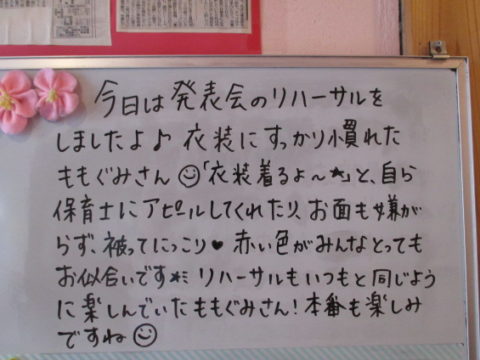 今日は発表会のリハーサルを
しましたよ♪ 衣装にすっかり慣れた
ももぐみさん☺「衣装着るよ～★」と、自ら
保育士にアピールしてくれたり、お面も嫌が
らず、被ってにっこり♥ 赤い色がみんなとっても
お似合いです☀ミ リハーサルもいつもと同じよう
に楽しんでいたももぐみさん！本番も楽しみ
ですね☺